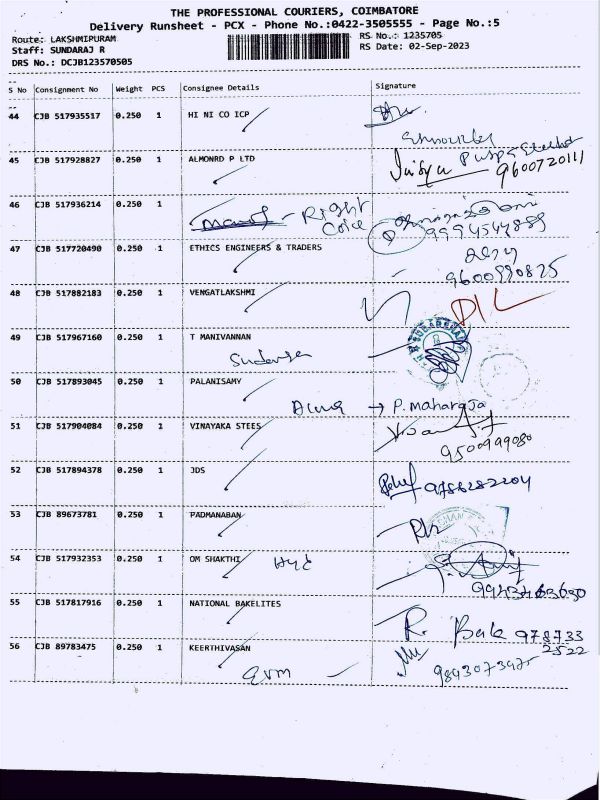 THE PROFESSIONAL COURIERS, COIMBATORE
Delivery Runsheet - PCX - Phone No.:0422-3505555 - Page No.:5
Route: LAKSHMIPURAM RS No.: 1235705
Staff: SUNDARAJ R RS Date: 02-Sep-2023
DRS No.: DCJB123570505
S No Consignment No Weight PCS Consignee Details Signature
44 CJB 517935517 0.250 1 HI NI CO ICP
45 CJB 517928827 0.250 1 ALMONRD P LTD
9600720111
46 CJB 517936214 0.250 1
Right
9994544889
47 CJB 517720490 0.250 1 ETHICS ENGINEERS & TRADERS
9600990825
48 CJB 517882183 0.250 1 VENGATLAKSHMI
DIL
49 CJB 517967160 0.250 1 T MANIVANNAN
50 CJB 517893045 0.250 1 PALANISAMY
→ P. Maharaja
51 CJB 517904084 0.250 1 VINAYAKA STEES
9500999080
52 CJB 517894378 0.250 1 JDS
53 CJB 89673781 0.250 1 PADMANABAN
54 CJB 517932353 0.250 1 OM SHAKTHI
55 CJB 517817916 0.250 1 NATIONAL BAKELITES
R. Bala 978733
2522
56 CJB 89783475 0.250 1 KEERTHIVASAN